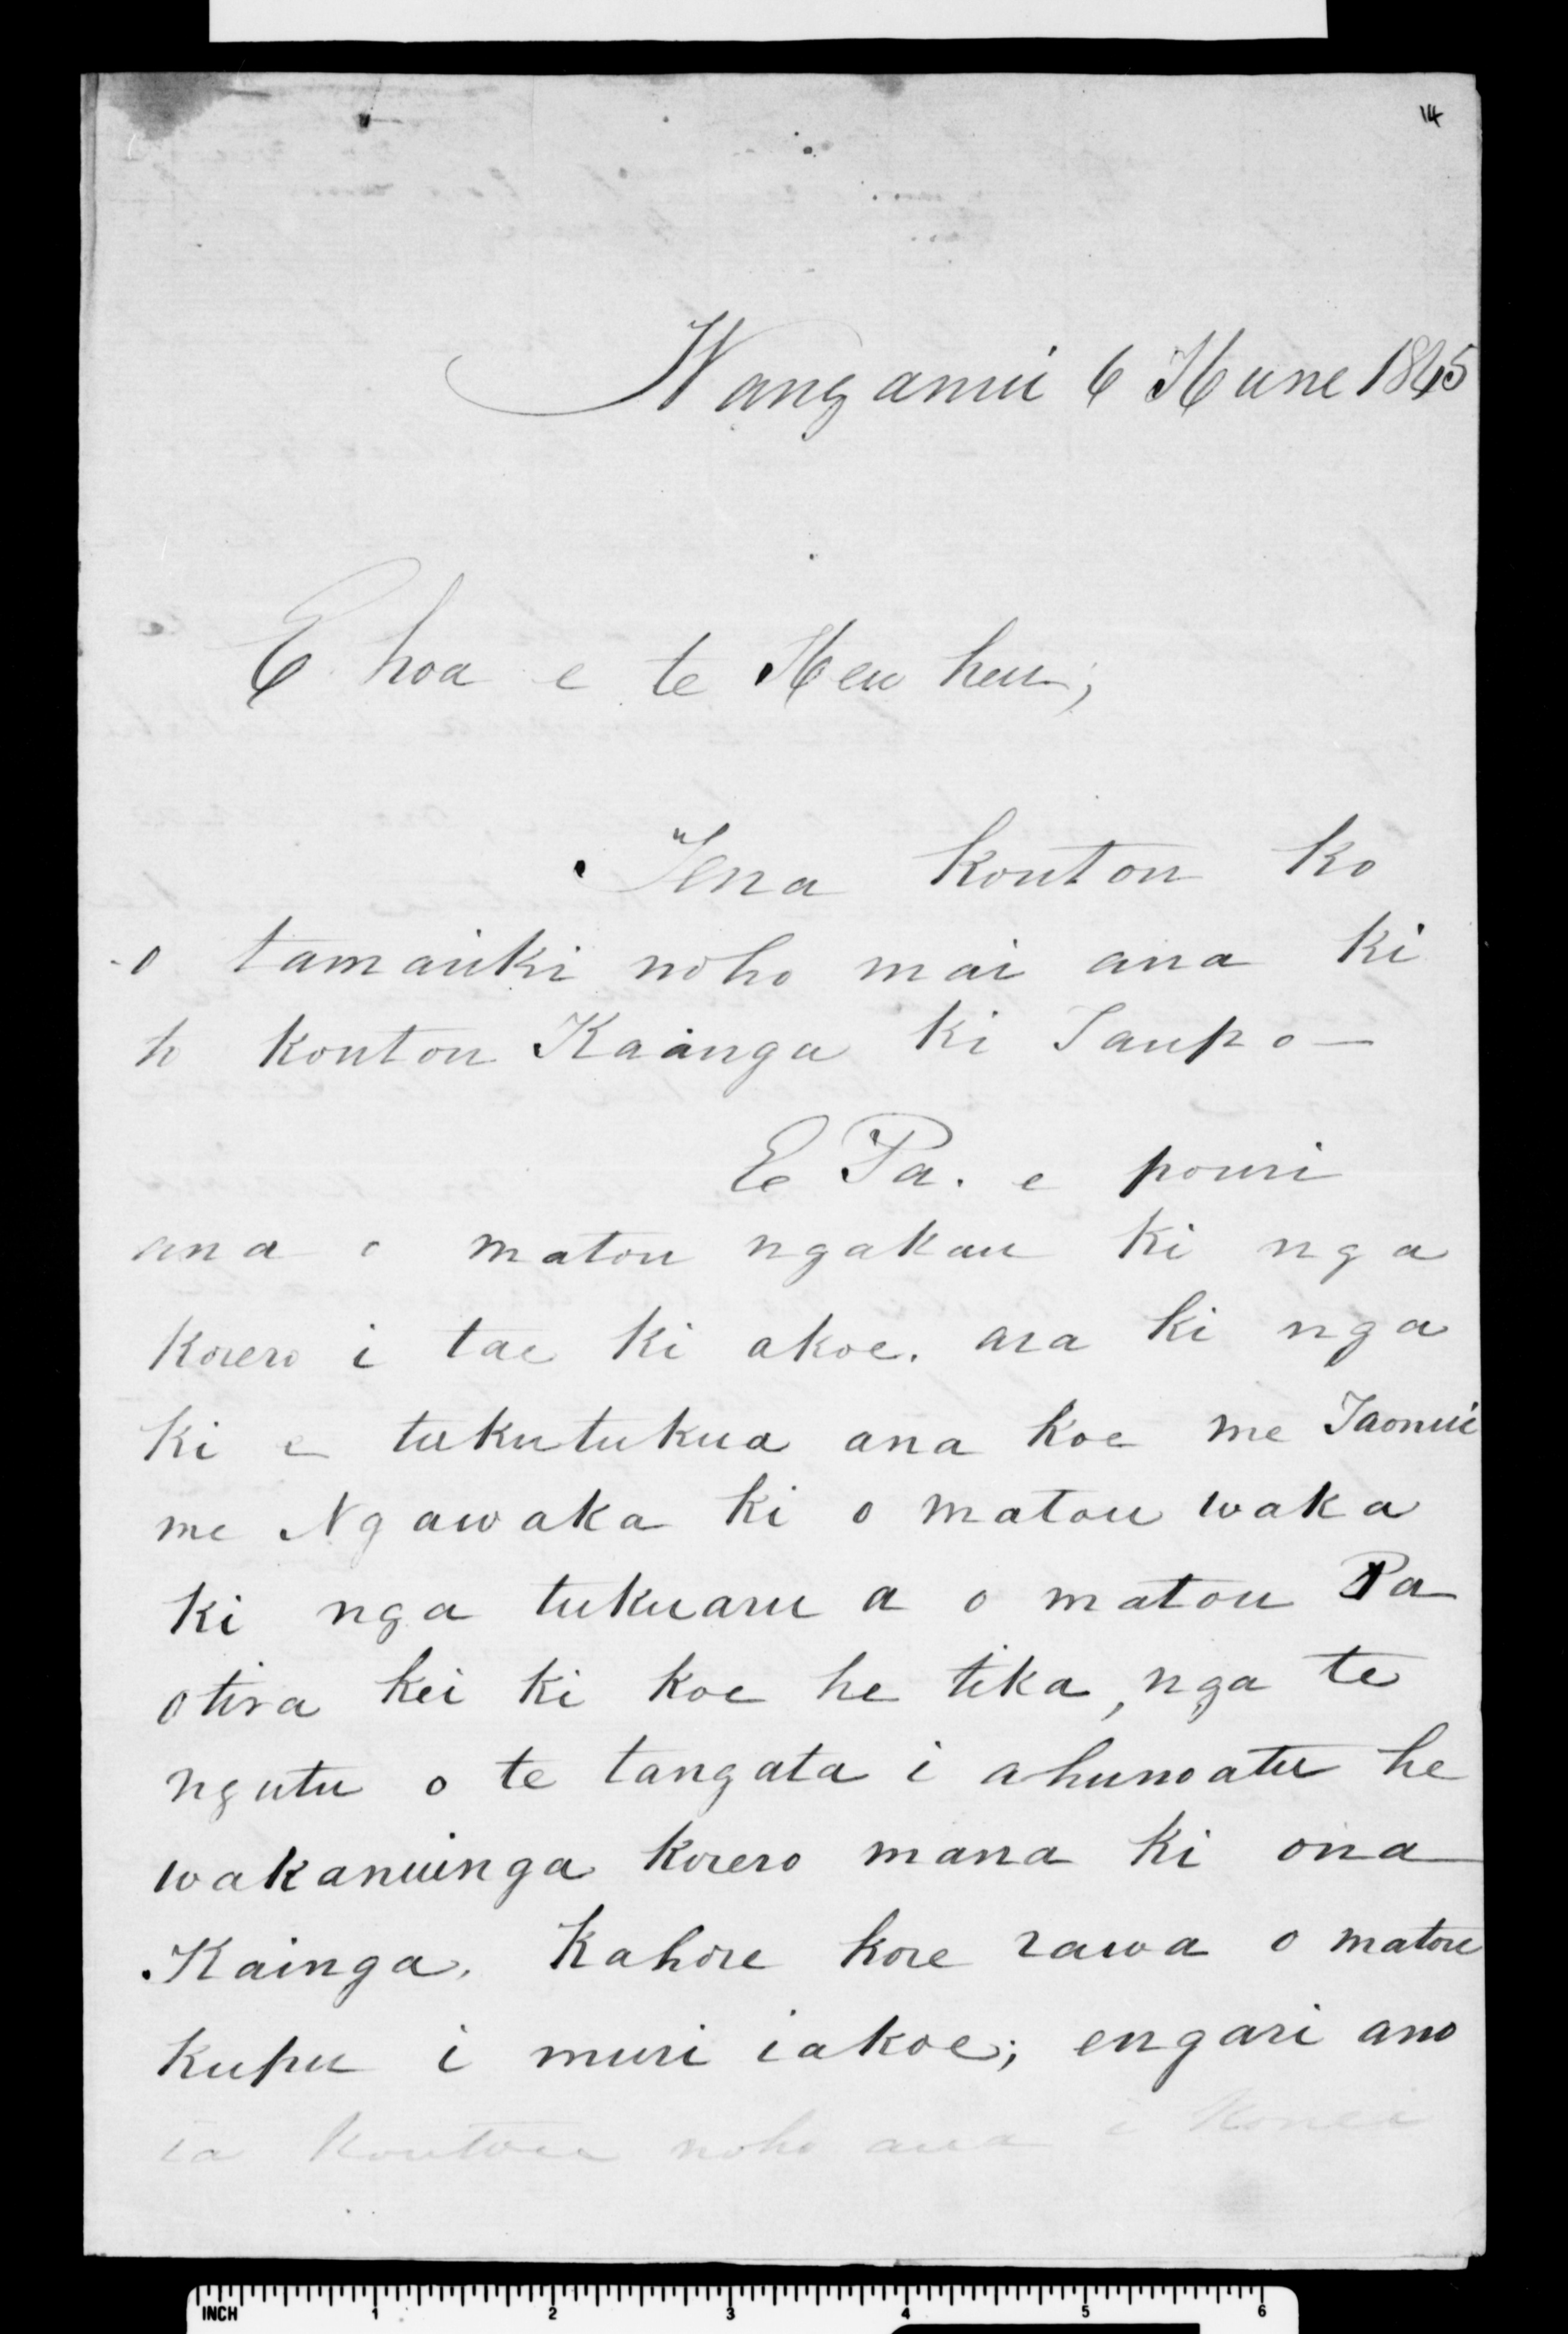 14
Wanganui 6 Hune 1845
E hoa e te Heu heu;
Tena koutou ko
o tamaiki noho mai ana ki
to koutou Kaainga ki Taupo —
E Pa. e pouri
ana o matou ngakau ki nga
korero i tae ki akoe. ara ki nga
ki e tukutukua ana koe me Taonui
me Ngawaka ki o matou waka
ki nga tukuaru a o matou Pa
otira kei ki koe he tika, nga te
ngutu o te tangata i ahu noatu he
wakanuinga korero mana ki ona
Kainga. Kahore kore rawa o matou
kupu i muri iakoe; engari ano
ia koutou noho ana i konei
INCH 1 2 3 4 5 6